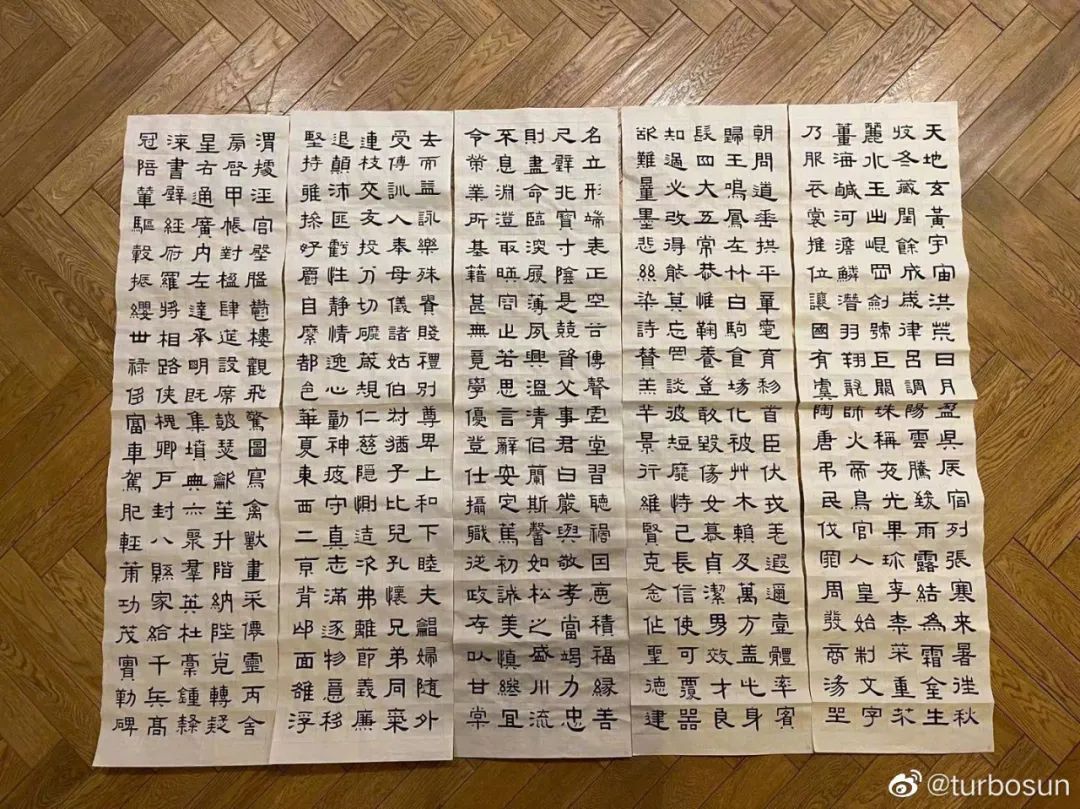 天地玄黃宇宙洪荒日月盈昃辰宿列張寒来暑往秋
收冬藏閏餘成歲律呂調陽雲騰致雨露結為霜金生
麗水玉出崐岡劍號巨闕珠稱夜光果珍李柰菜重芥
薑海鹹河澹鱗潛羽翔龍師火帝鳥官人皇始制文字
乃服衣裳推位讓國有虞陶唐弔民伐罪周發商湯坐
朝問道垂拱平章愛育黎首臣伏戎羌遐邇壹體率賓
歸王鳴鳳在竹白駒食場化被艸木賴及萬方蓋此身
髮四大五常恭惟鞠養豈敢毀傷女慕貞潔男效才良
知過必改得能莫忘罔談彼短靡恃己長信使可覆器
欲難量墨悲絲染詩贊羔羊景行維賢克念作聖德建
名立形端表正空谷傳聲虛堂習聽禍因惡積福緣善
尺璧非寶寸陰是競資父事君曰嚴與敬孝當竭力忠
則盡命臨深履薄夙興溫清佀蘭斯馨如松之盛川流
不息淵澄取暎容止若思言辭安定篤初誠美慎終宜
令榮業所基藉甚無竟學優登仕攝職從政存以甘棠
去而益詠樂殊貴賤禮別尊卑上和下睦夫唱婦随外
受傅訓入奉母儀諸姑伯叔猶子比兒孔懷兄弟同氣
連枝交友投分切磨箴規仁慈隱惻造次弗離節義廉
退顛沛匪虧性静情逸心動神疲守真志滿逐物意移
堅持雅操好爵自縻都邑華夏東西二京背邙面雒浮
渭據涇宮殿盤鬱樓觀飛驚圖寫禽獸畫采僊靈丙舍
傍啓甲帳對楹肆筵設席鼓瑟吹笙升階納陛弁轉疑
星右通廣內左達承明既集墳典亦聚羣英杜稾鍾隸
漆書壁經府羅將相路俠槐卿戶封八縣家給千兵高
冠陪輦驅轂振纓世祿侈富車駕肥輕策功茂實勒碑
@turbosun